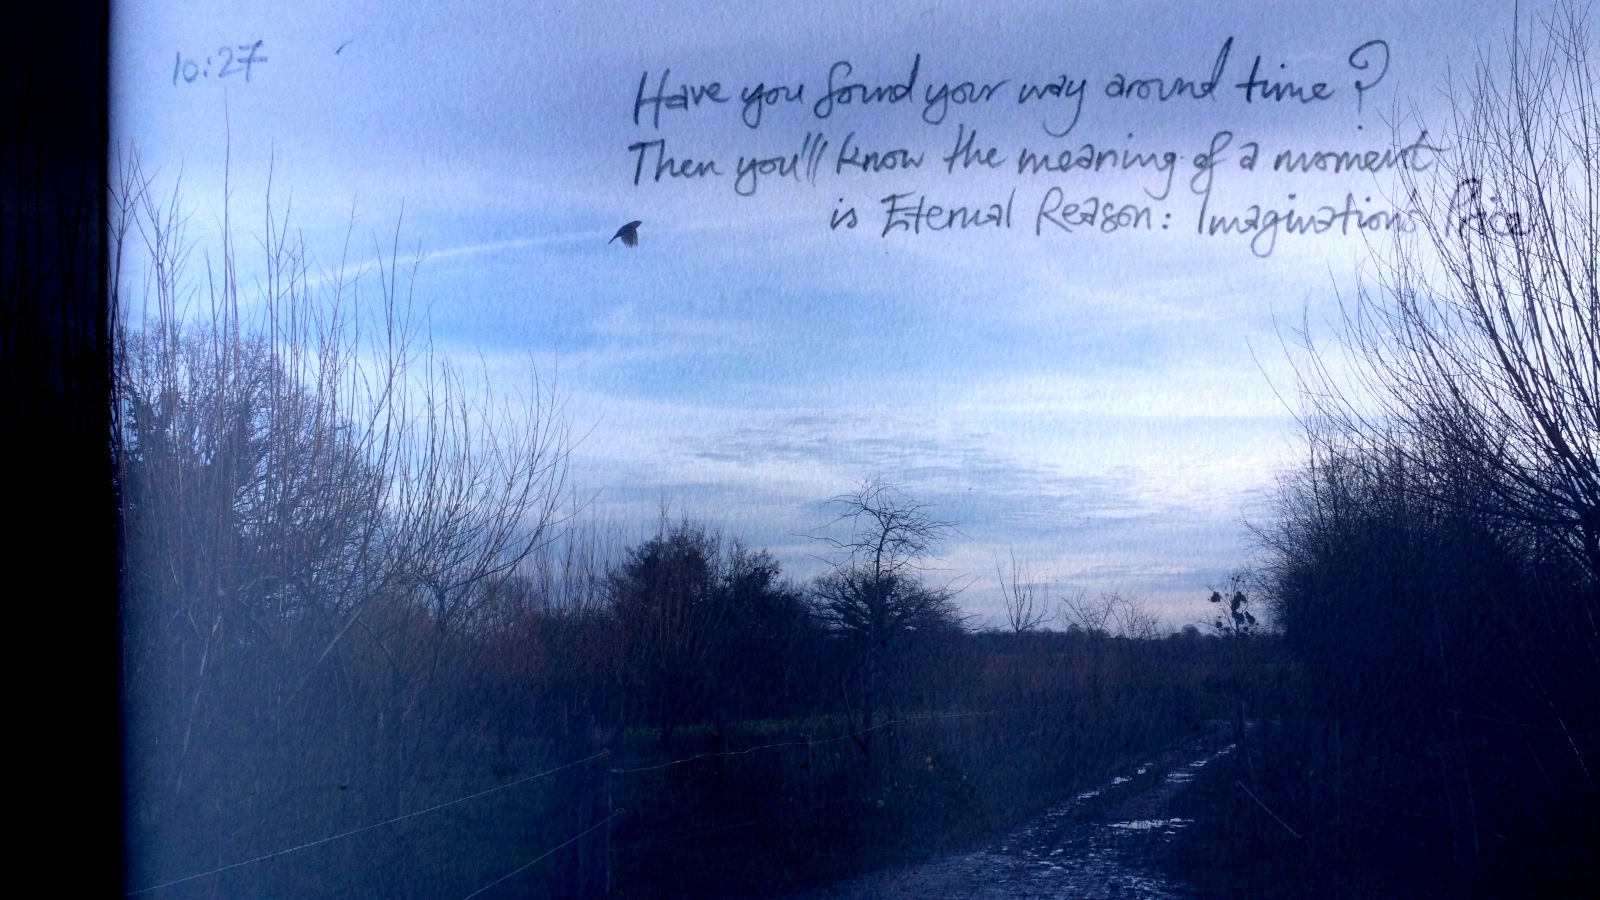 10:27
Have you found your way around time?
Then you'll know the meaning of a moment
is Eternal Reason: Imagination's Price